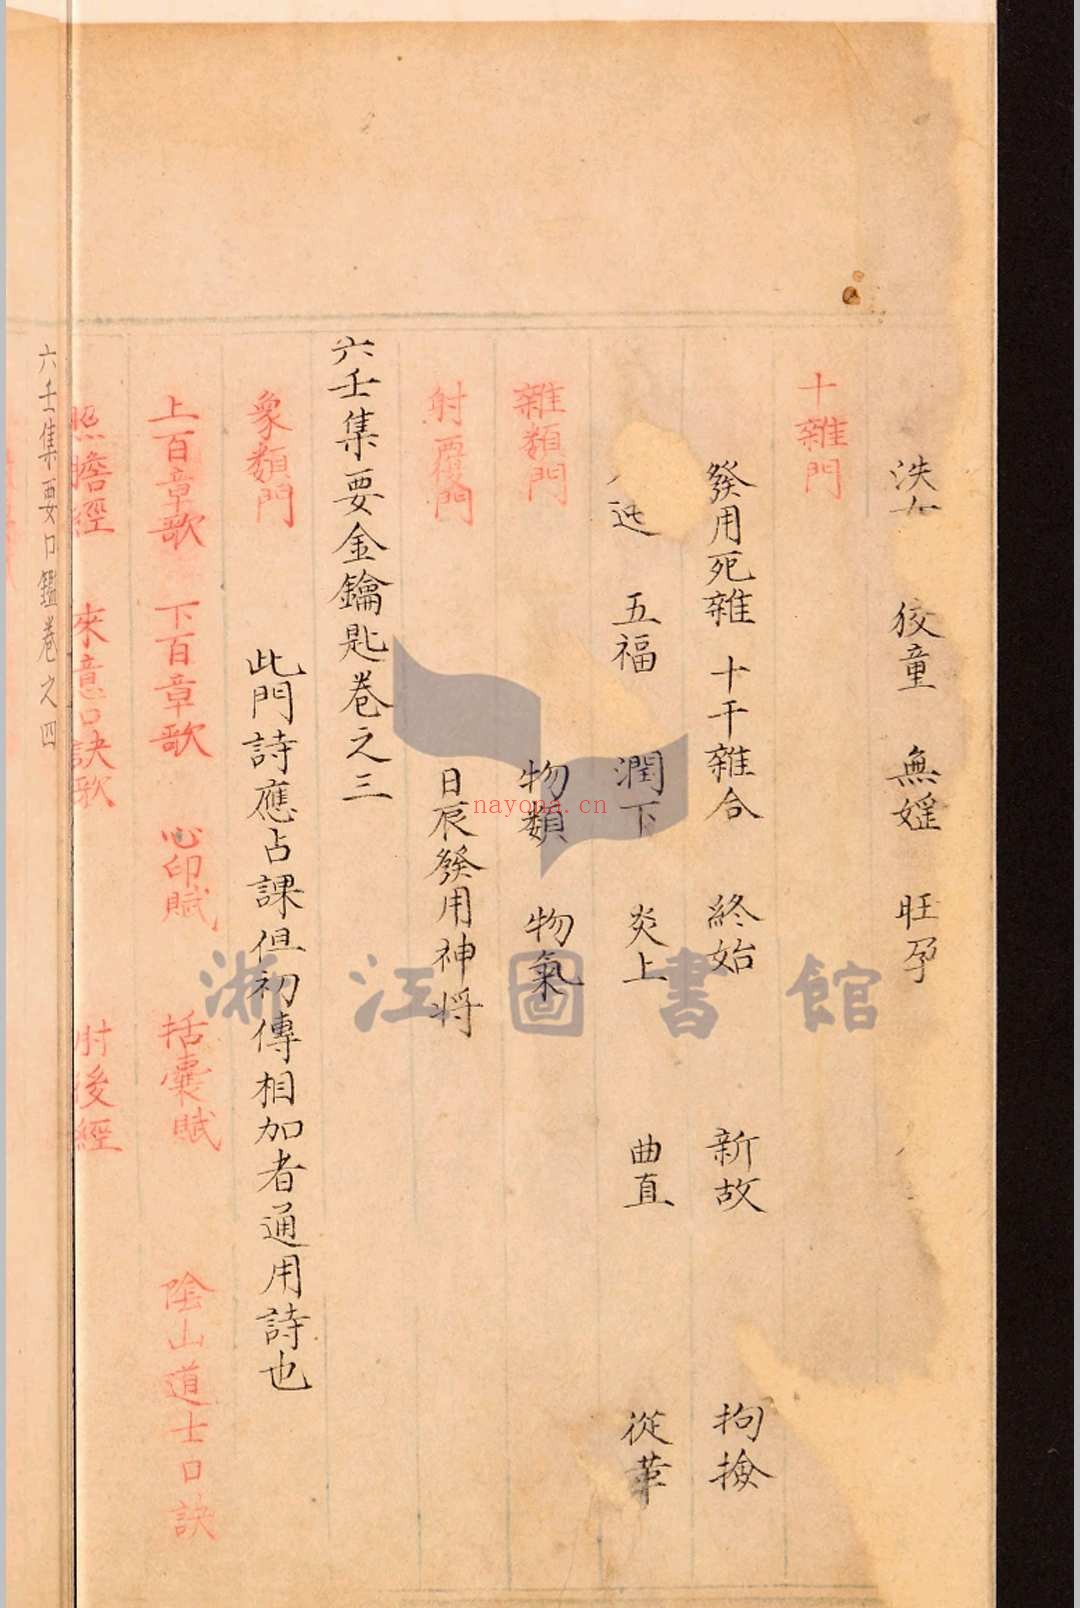 泆女 狡童 無婬 旺孕
十雜門
發用死雜 十干雜合 終始 新故 拘撿
迍 五福 潤下 炎上 曲直 從革
雜類門
物類 物氣
射覆門
日辰發用神将
六壬集要金鑰匙卷之三
象類門
此門詩應占課但初傳相加者通用詩也
上百章歌 下百章歌 心印賦 括囊賦 陰山道士口訣
照膽經 來意口訣歌 肘後經
六壬集要口鑑卷之四
浙江圖書館
nayona.cn